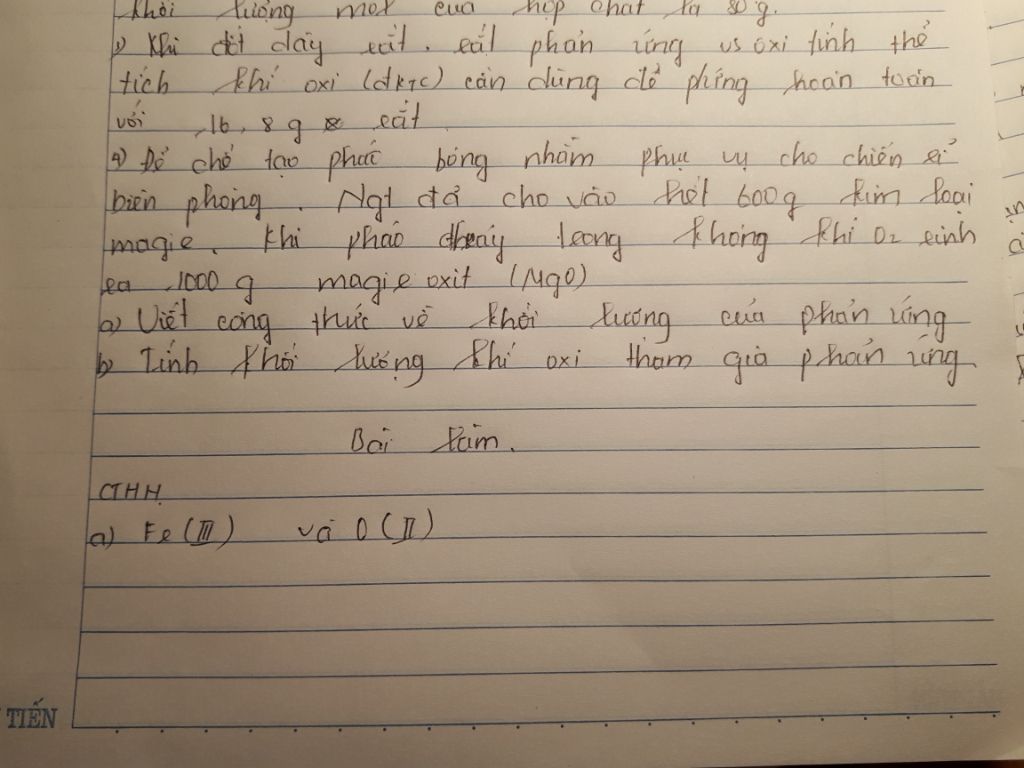 khối lượng mol của hợp chất là 80 g.
3) Khi đốt dây sắt. sắt phản ứng vs oxi tính thể
tích khí oxi (đktc) cần dùng để phứng hoàn toàn
với 16,8 g sắt
4) Để chế tạo pháo bóng nhằm phục vụ cho chiến sĩ
biên phòng. Ngt đã cho vào hết 600g kim loại
magie. Khi pháo cháy trong không khí O2 sinh
ra 1000 g magie oxit (MgO)
a) Viết công thức về khối lượng của phản ứng
b) Tính khối lượng khí oxi tham gia phản ứng
Bài làm.
CTHH
a) Fe (III) và O (II)
TIẾN